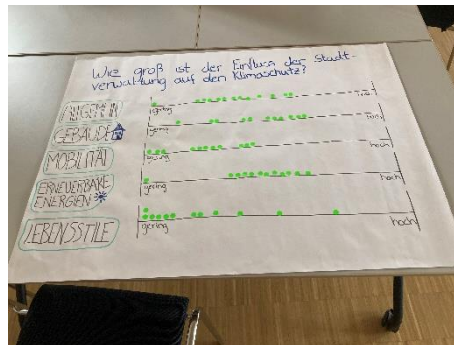 Wie groß ist der Einfluss der Stadt-
verwaltung auf den Klimaschutz?
ALLGEMEIN
gering hoch
GEBÄUDE
gering hoch
MOBILITÄT
gering hoch
ERNEUERBARE
ENERGIEN
gering hoch
LEBENSSTILE
gering hoch